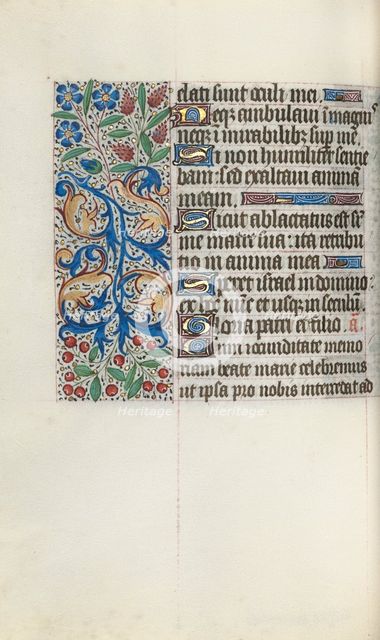 elati sunt oculi mei.
Neq; ambulaui i magnis
neq; i mirabilib; sup me.
Si non humiliter sentie
bam: sed exaltaui animā
meam.
Sicut ablactatus est sr̄
me matre sua: ita retribu
tio in anima mea
Speret israel in domino:
ex hoc nūc et usq; in seculū.
Gloria patri et filio. a.
Cum iocunditate memo
riam beate marie celebremus
ut ipsa pro nobis intercedat ad
Heritage Heritage
Heritage Heritage